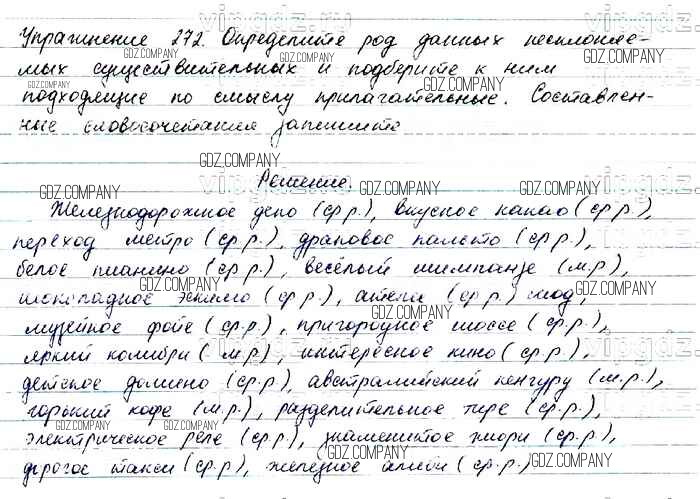 Упражнение 272. Определите род данных несклоняе-
мых существительных и подберите к ним
подходящие по смыслу прилагательные. Составлен-
ные словосочетания запишите
Решение.
Железнодорожное депо (ср р.), вкусное какао (ср р.),
переход метро (ср.р.), драповое пальто (ср.р.),
белое пианино (ср.р.), весёлый шимпанзе (м.р.),
шоколадное эскимо (ср р.), ателье (ср р.) мод,
музейное фойе (ср.р.), пригородное шоссе (ср.р.),
яркий колибри (м.р.), интересное кино (ср.р.),
детское домино (ср.р.), австралийский кенгуру (м.р.),
горький кофе (м.р.), разделительное тире (ср.р.),
электрическое реле (ср.р.), знаменитое жюри (ср.р.),
дорогое такси (ср.р), железное алиби (ср.р.)
GDZ.COMPANY
vipgdz.ru